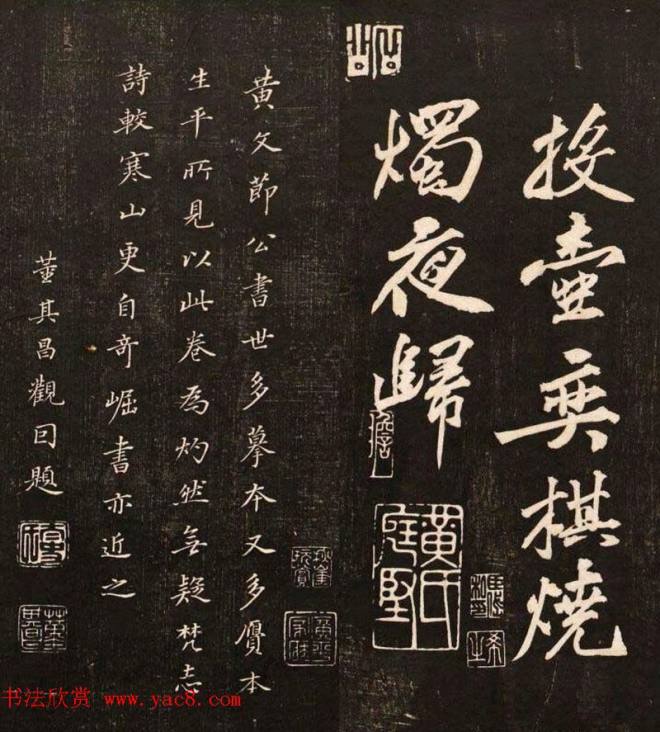 投壺弈棋燒
燭夜歸
黃氏庭堅
黃文節公書世多摹本又多贗本
生平所見以此卷為灼然無疑梵志
詩較寒山更自奇崛書亦近之
董其昌觀因題
书法欣赏 www.yac8.com